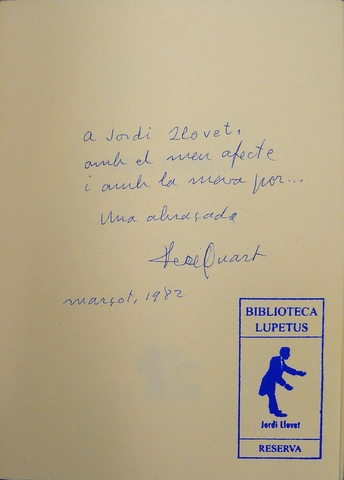 a Jordi Llovet,
amb el meu afecte
i amb la meva por...
Una abraçada
Pere Quart
març, 1982
BIBLIOTECA
LUPETUS
Jordi Llovet
RESERVA